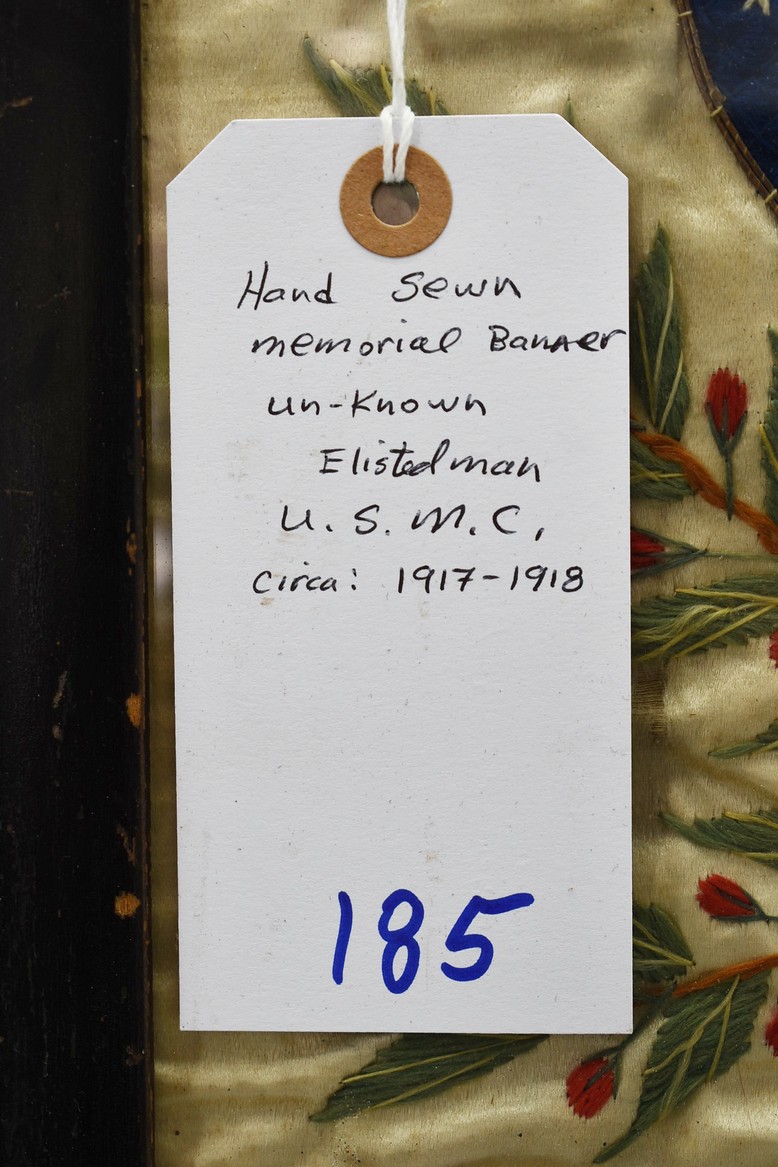 Hand Sewn
memorial Banner
un-Known
Elistedman
U.S.M.C,
circa: 1917-1918
185